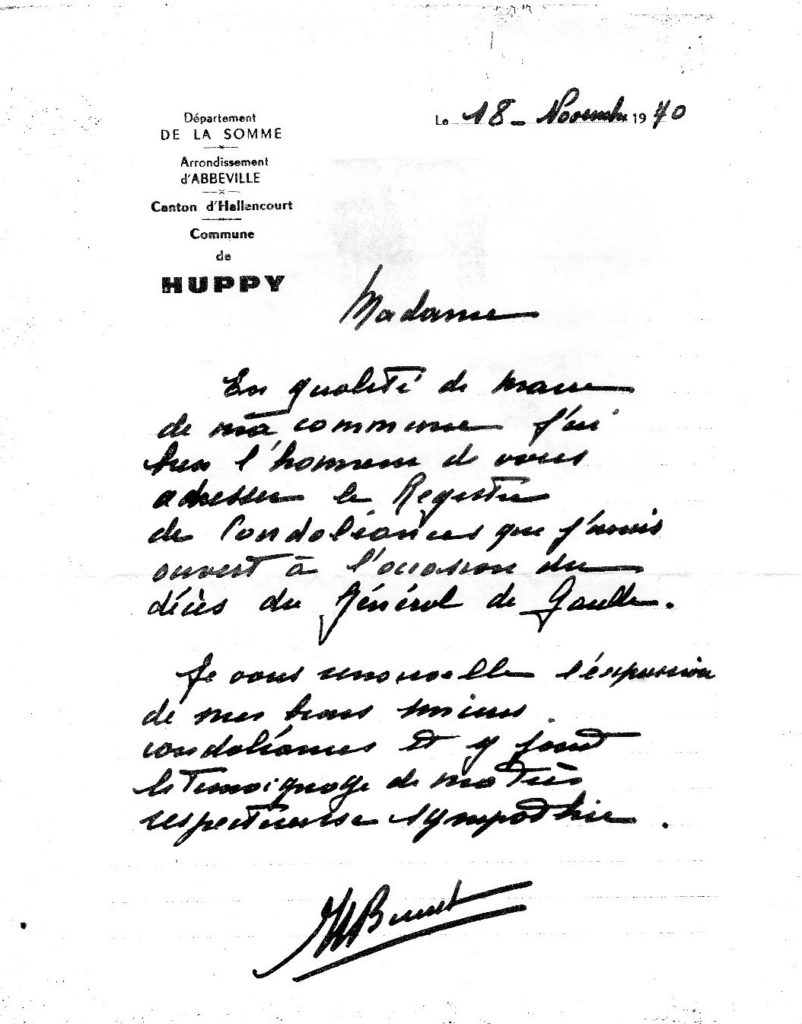 Département
DE LA SOMME
Arrondissement
d'ABBEVILLE
Canton d'Hallencourt
Commune
de
HUPPY
Le 18 - Novembre 1970
Madame
En qualité de maire
de ma commune j'ai
l'honneur de vous
adresser le Registre
de Condoléances que j'avais
ouvert à l'occasion du
décès du Général de Gaulle.
Je vous renouvelle l'expression
de mes
condoléances et y joint
le témoignage de ma très
respectueuse sympathie.